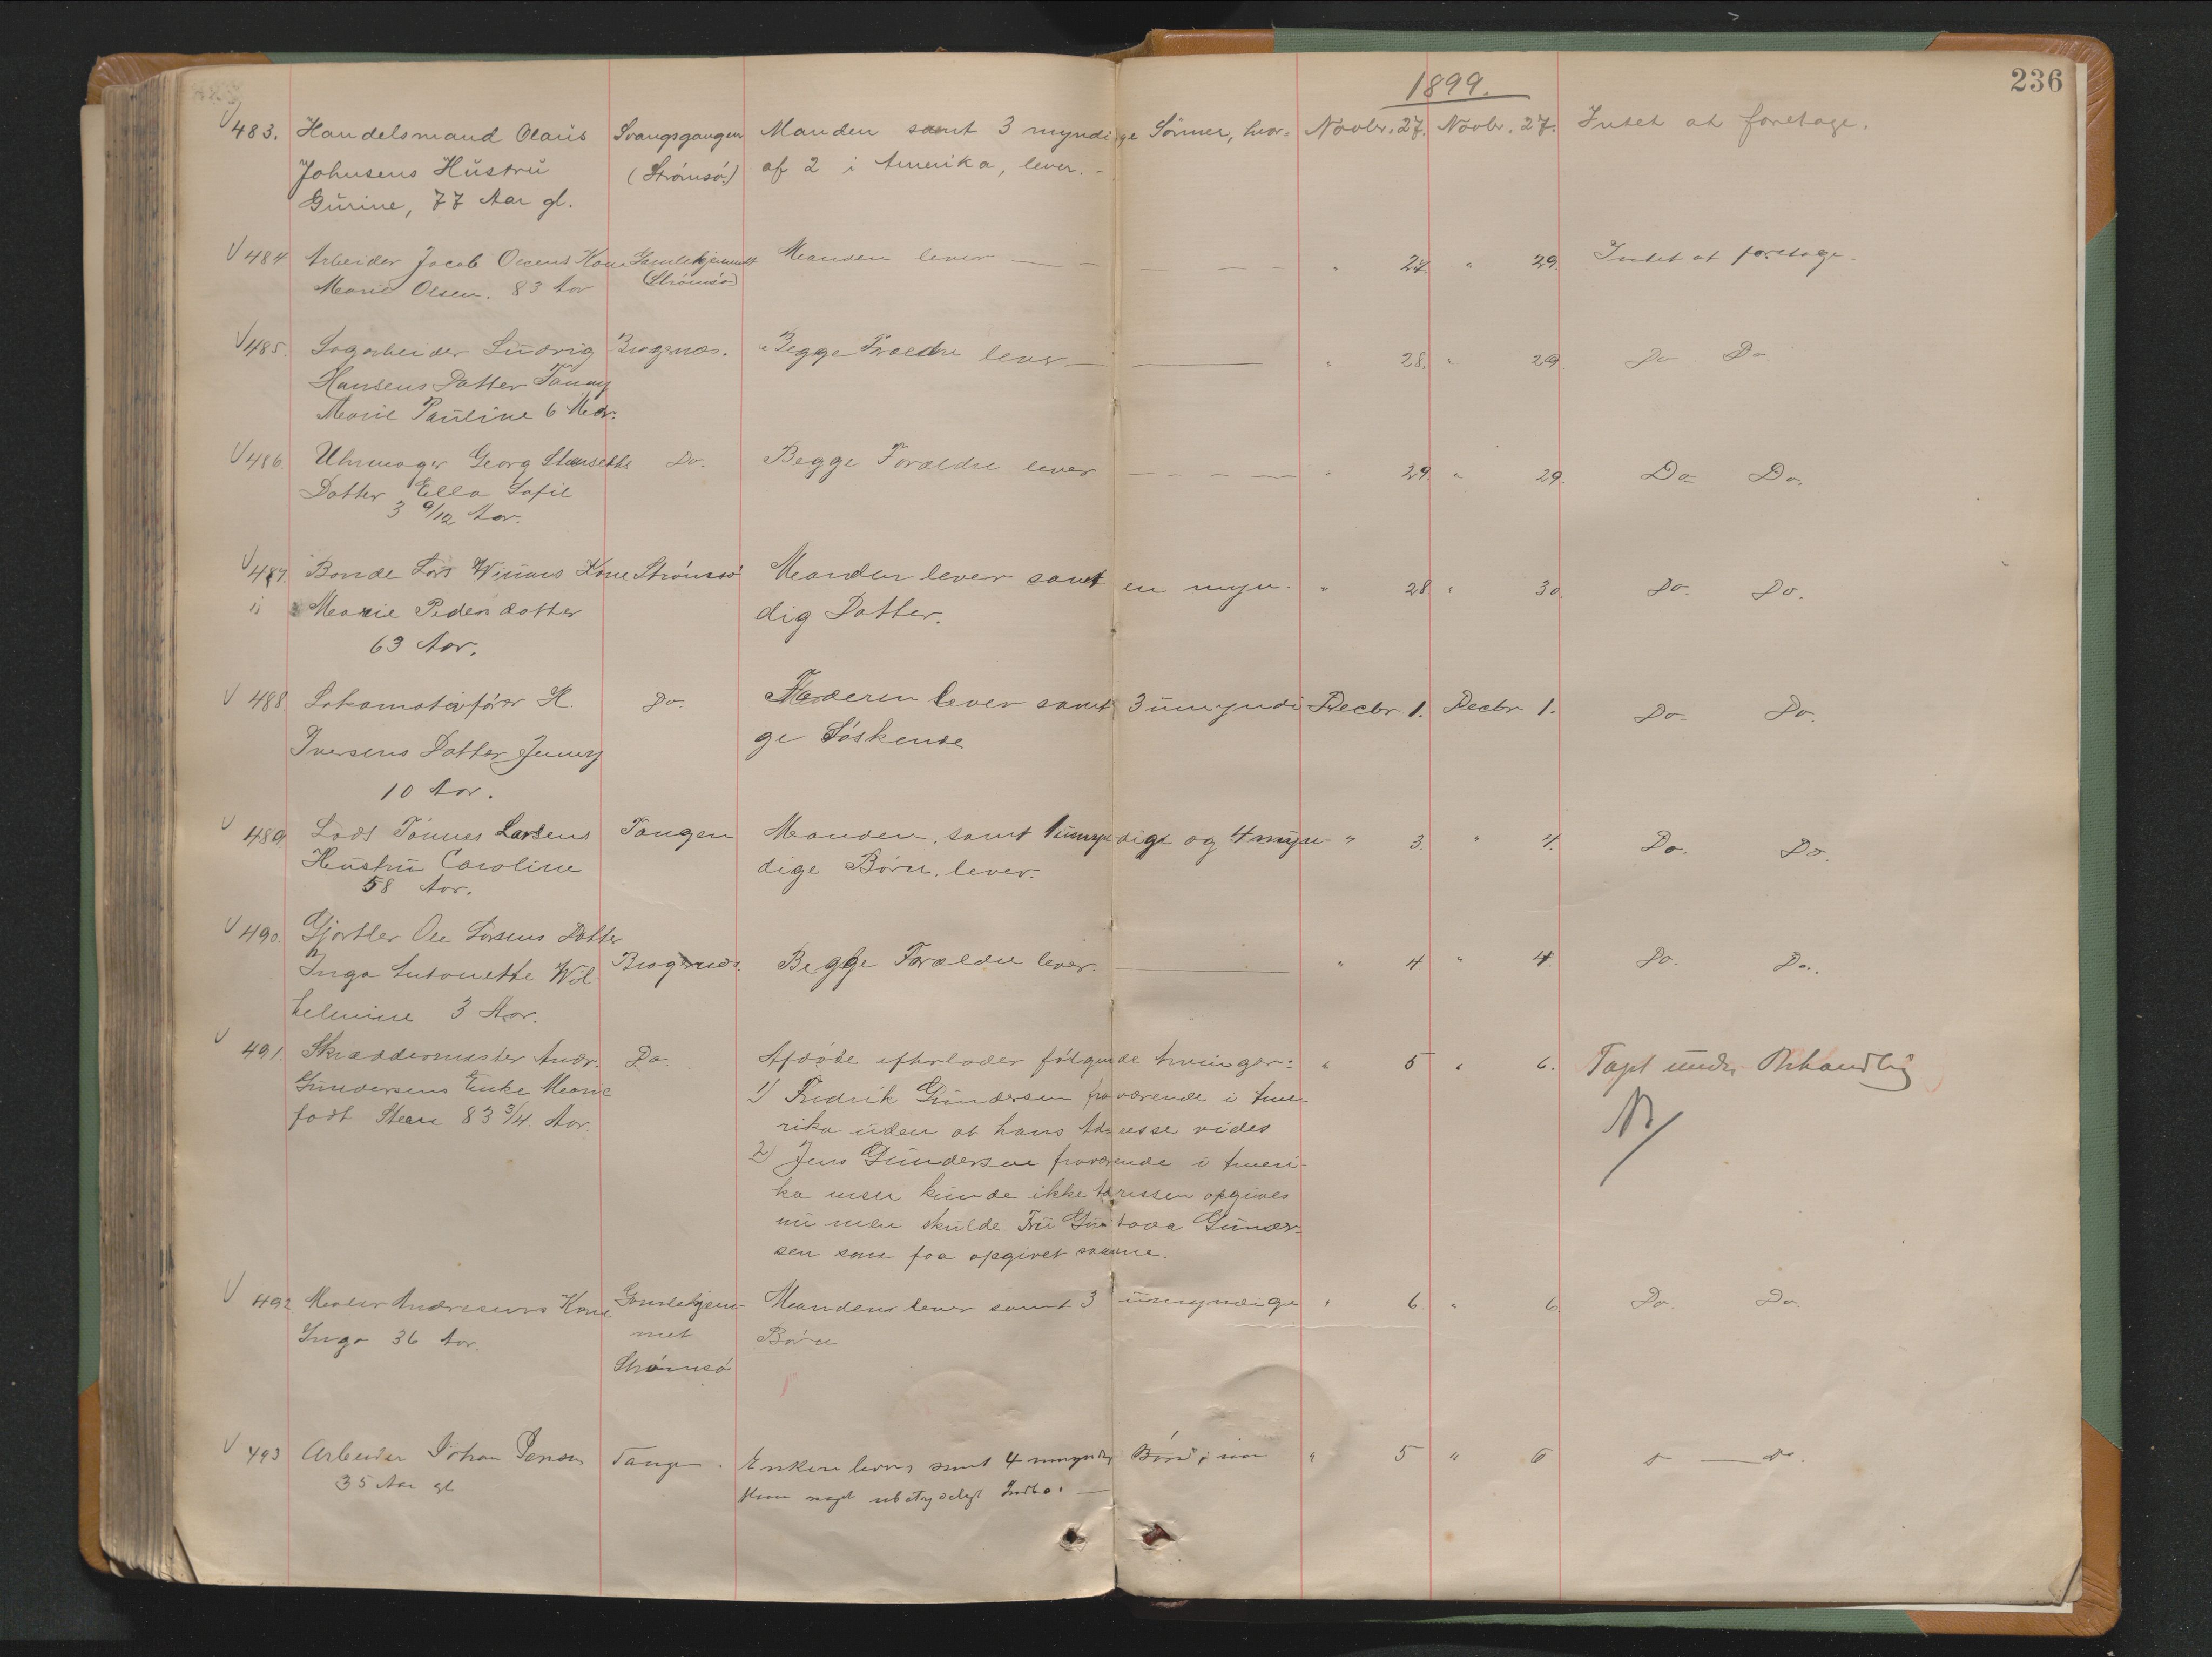 1899.
236
483. Handelsmand Olaus Svangsgangen Manden samt 3 myndige Sønner, hvor= Novbr. 27. Novbr. 27. Intet at foretage.
Johnsens Hustru (Strømsø) af 2 i Amerika, lever. -
Gurine, 77 Aar gl.
484 Arbeider Jacob Olsens Kone Gamlehjemmet Manden lever " 27. " 29. Intet at foretage.
Marie Olsen. 83 Aar (Strømsø)
485. Sagarbeider Ludvig Bragernæs. Begge Forældre lever " 28. " 29. Do Do
Hansens Datter Fanny
Marie Pauline 6 Mdr.
486. Uhrmager Georg Do. Begge Forældre lever " 29. " 29. Do Do.
Datter Ella Sofie
3 9/12 Aar.
487. Bonde Lars Kone Strømsø Manden lever samt en myn- " 28. " 30. Do. Do.
Marie Pedersdatter dig Datter.
63 Aar.
488. Lokomotivfører H. Do. Faderen lever samt 3 umyndi Decbr 1. Decbr 1. Do. Do.
Iversens Datter Jenny ge Søskende
10 Aar.
489. Lods Tønnes Larsens Tangen Manden, samt 1 umyndige og 4 myn- " 3. " 4. Do. Do.
Hustru Caroline dige Børn, lever.
58 Aar.
490. Gjørtler Ole Larsens Datter
Inga Antonette Wil- Bragernæs. Begge Forældre lever. " 4. " 4. Do. Do.
helmine 3 Aar.
491. Skræddermester Andr. Do. Afdøde efterlader følgende Arvinger: " 5 " 6. Tagt under Behandling
Gundersens Enke Marie 1) Fredrik Gundersen fraværende i Ame-
født Steen 83 3/4. Aar. rika uden at hans Adresse vides
2) Jens Gundersen fraværende i Ameri-
ka men kunde ikke Adressen opgives
nu men skulde Fru Gustava Gunder-
sen faa opgivet samme.
492 Maler Andresens Kone Gamlehjem- Manden lever samt 3 umyndige " 6. " 6. Do. Do.
Inga 36 Aar. met Børn
Strømsø
493 Arbeider Johan Jensen Tangen. Enken lever, samt 4 umyndige Børn; " 5 " 6 Do.
35 Aar gl Kun noget ubetydeligt Indbo. -